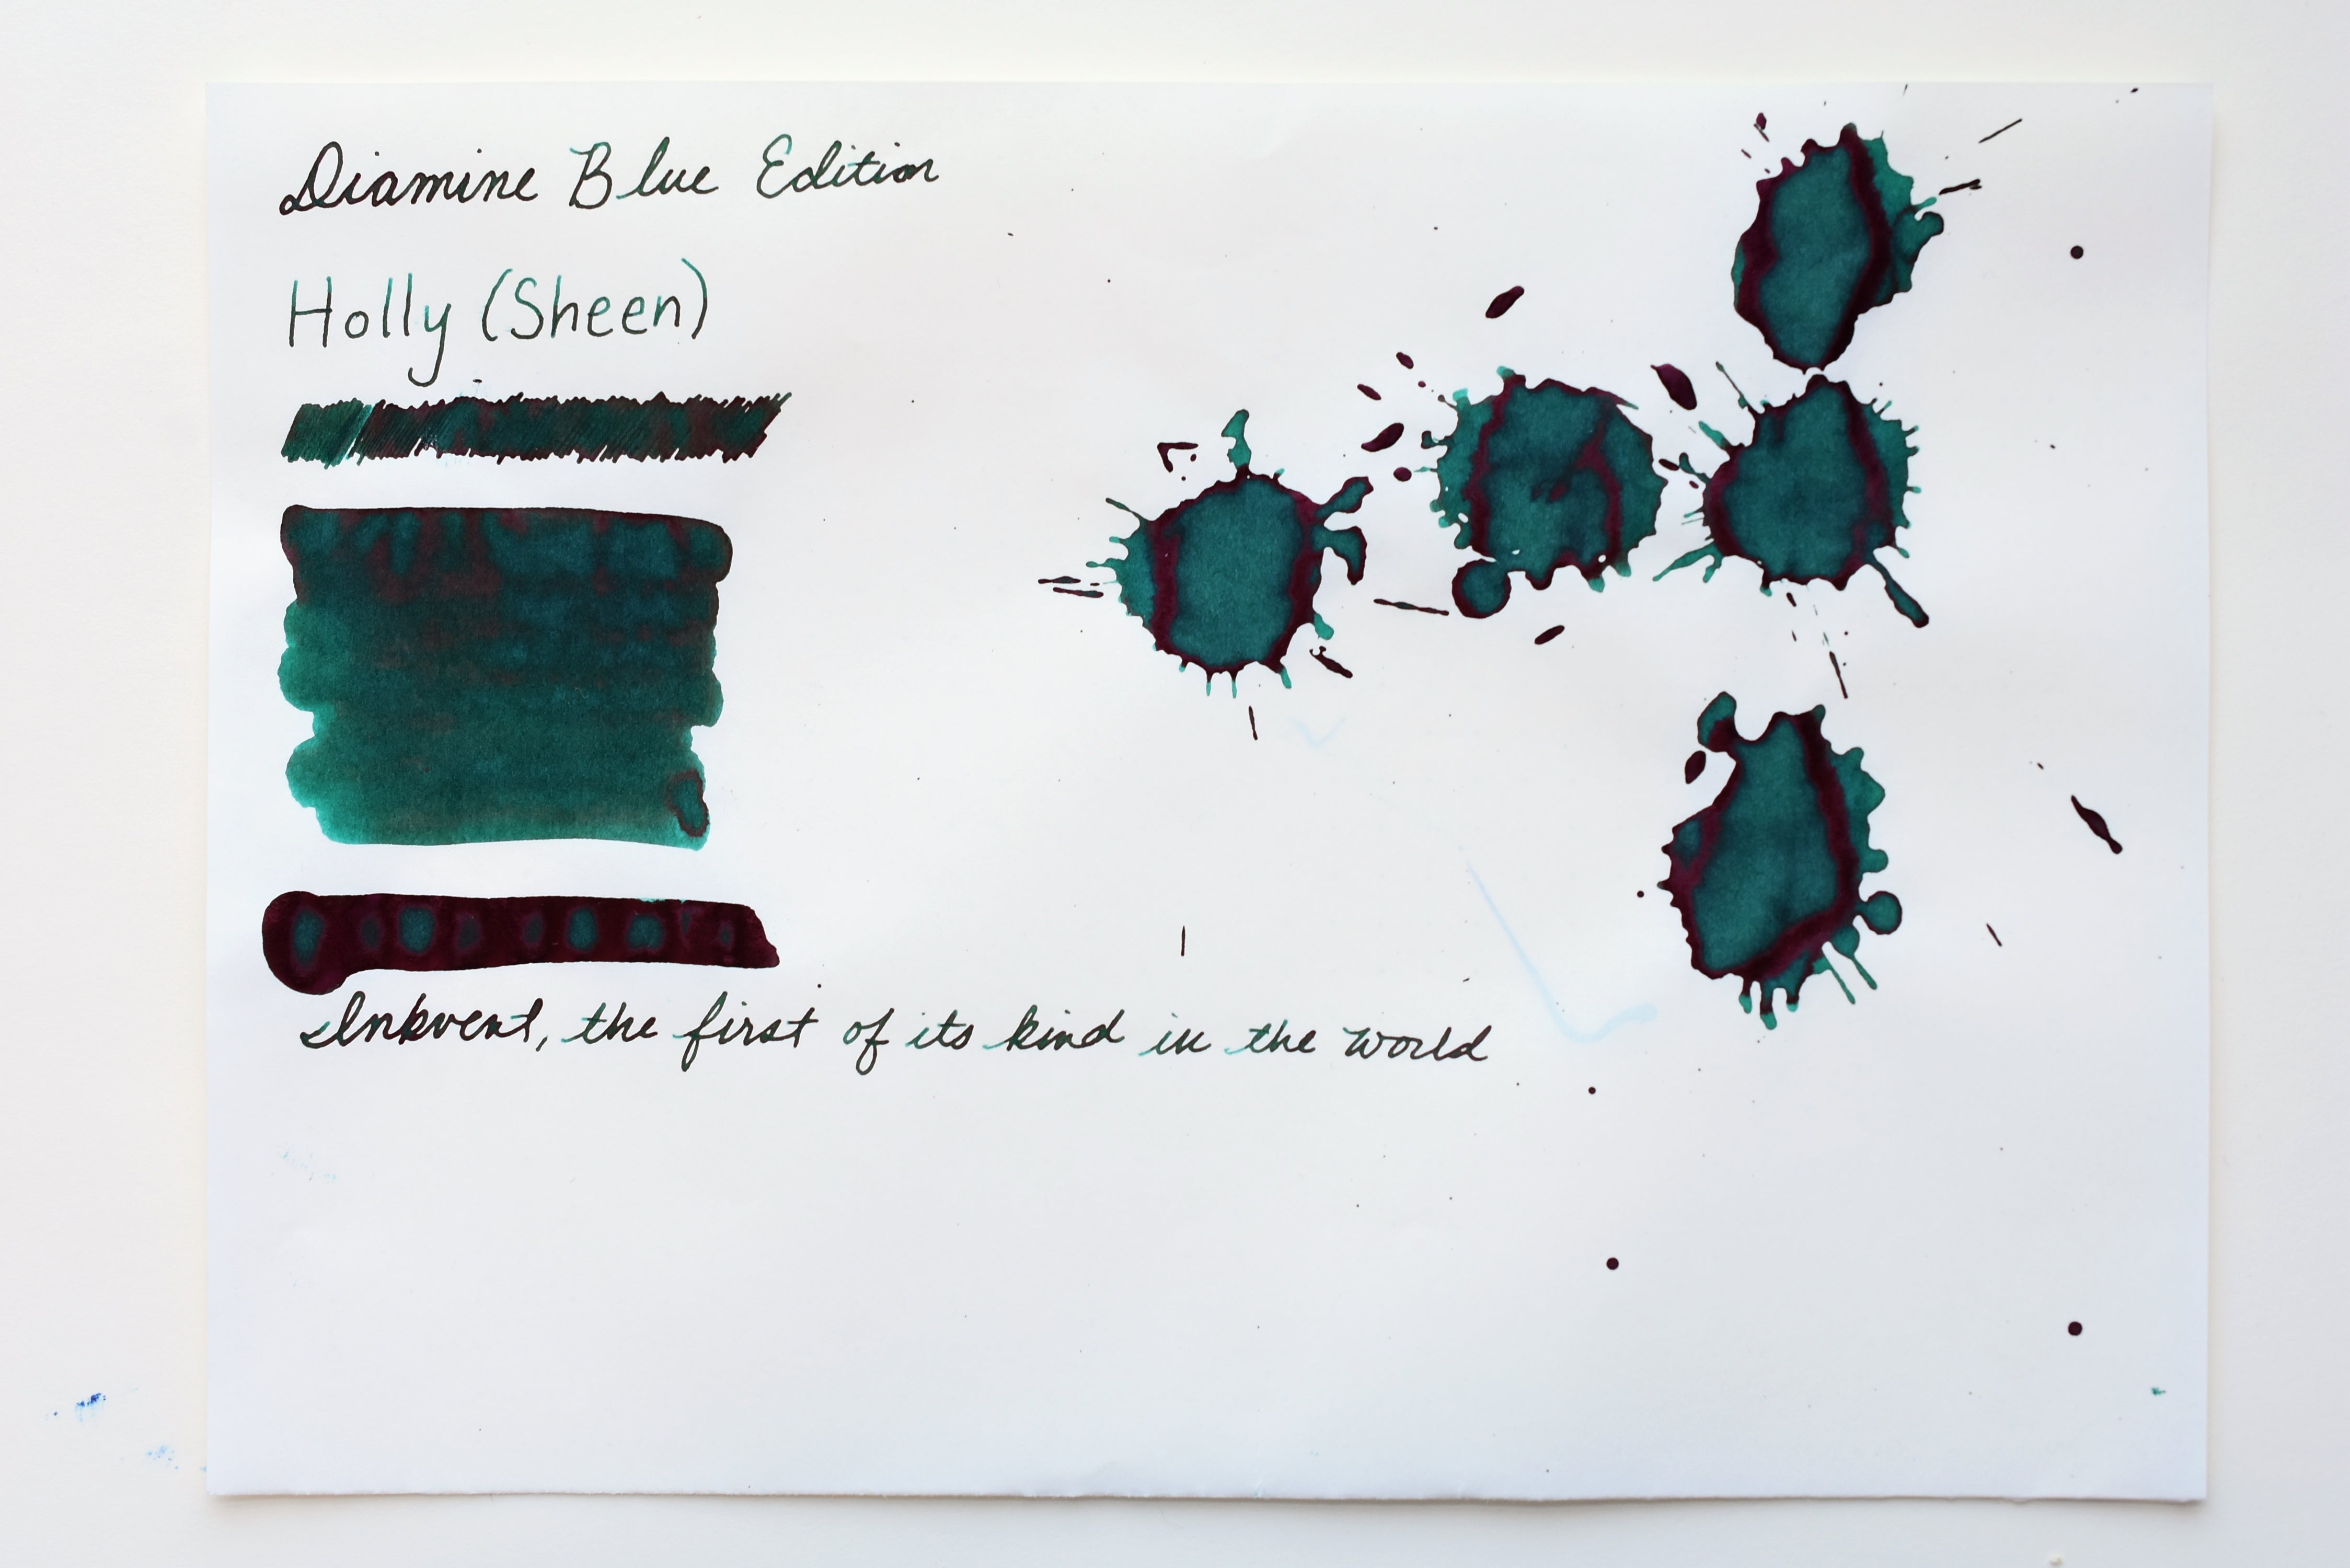 Diamine Blue Edition
Holly (Sheen)
Inkvent, the first of its kind in the world